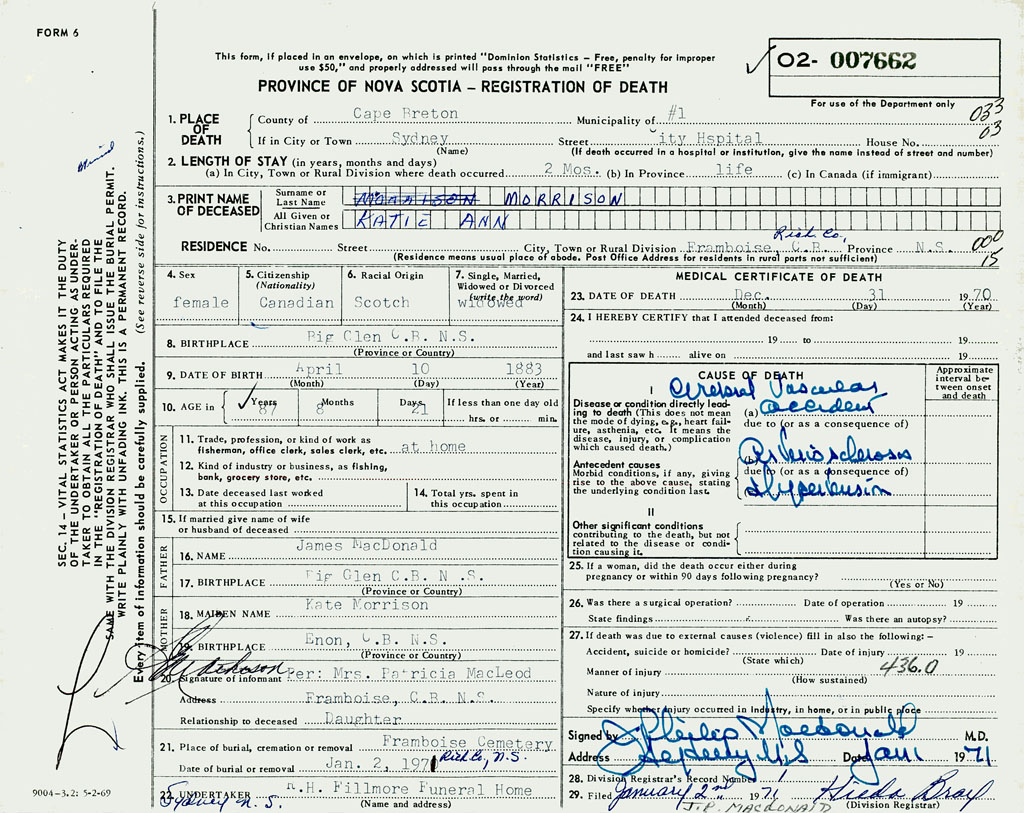 FORM 6
This form, if placed in an envelope, on which is printed "Dominion Statistics – Free, penalty for improper
use $50," and properly addressed will pass through the mail "FREE"
PROVINCE OF NOVA SCOTIA – REGISTRATION OF DEATH
02- 007662
For use of the Department only
033
03
1. PLACE OF DEATH
County of Cape Breton Municipality of #1
If in City or Town Sydney Street ity Hspital House No.
(Name) (If death occurred in a hospital or institution, give the name instead of street and number)
2. LENGTH OF STAY (in years, months and days)
(a) In City, Town or Rural Division where death occurred 2 Mos. (b) In Province life (c) In Canada (if immigrant)
3. PRINT NAME OF DECEASED
Surname or Last Name MORRISON
All Given or Christian Names KATIE ANN
Rich Co.,
RESIDENCE No. Street City, Town or Rural Division Framboise, C.B. Province N.S.
(Residence means usual place of abode. Post Office Address for residents in rural parts not sufficient)
000
15
4. Sex
female
5. Citizenship
(Nationality)
Canadian
6. Racial Origin
Scotch
7. Single, Married,
Widowed or Divorced
(write the word)
widowed
8. BIRTHPLACE Big Glen C.B. N.S.
(Province or Country)
9. DATE OF BIRTH April 10 1883
(Month) (Day) (Year)
10. AGE in Years Months Days If less than one day old
87 8 21 hrs. or min.
OCCUPATION
11. Trade, profession, or kind of work as
fisherman, office clerk, sales clerk, etc. at home
12. Kind of industry or business, as fishing,
bank, grocery store, etc.
13. Date deceased last worked
at this occupation
14. Total yrs. spent in
this occupation
15. If married give name of wife
or husband of deceased
FATHER
16. NAME James MacDonald
17. BIRTHPLACE Big Glen C.B. N .S.
(Province or Country)
MOTHER
18. MAIDEN NAME Kate Morrison
19. BIRTHPLACE Enon, C.B. N.S.
(Province or Country)
20. Signature of informant Per: Mrs. Patricia MacLeod
Address Framboise, C.B. N.S.
Relationship to deceased Daughter
21. Place of burial, cremation or removal Framboise Cemetery
Rich Co, N.S.
Date of burial or removal Jan. 2, 1971
22. UNDERTAKER R.H. Fillmore Funeral Home
Sydney N.S. (Name and address)
MEDICAL CERTIFICATE OF DEATH
23. DATE OF DEATH Dec. 31 1970
(Month) (Day) (Year)
24. I HEREBY CERTIFY that I attended deceased from:
19 to 19
and last saw h alive on 19
CAUSE OF DEATH
Approximate interval between onset and death
I
Cerebral Vascular
Disease or condition directly leading to death (This does not mean the mode of dying, e.g., heart failure, asthenia, etc. It means the disease, injury, or complication which caused death.)
(a) accident
due to (or as a consequence of)
Antecedent causes
Morbid conditions, if any, giving rise to the above cause, stating the underlying condition last.
(b) Arteriosclerosis
due to (or as a consequence of)
Hypertension
II
Other significant conditions
contributing to the death, but not
related to the disease or condition causing it.
25. If a woman, did the death occur either during
pregnancy or within 90 days following pregnancy?
(Yes or No)
26. Was there a surgical operation? Date of operation 19
State findings Was there an autopsy?
27. If death was due to external causes (violence) fill in also the following: –
Accident, suicide or homicide? Date of injury 19
(State which)
Manner of injury 436.0
(How sustained)
Nature of injury
Specify whether injury occurred in Industry, in home, or in public place
Signed by J Philip Macdonald M.D.
Address Date Jan 1 1971
28. Division Registrar's Record Number 1
29. Filed January 2nd 1971 Hilda Bray
J.P. MACDONALD (Division Registrar)
SEC. 14 – VITAL STATISTICS ACT MAKES IT THE DUTY
OF THE UNDERTAKER OR PERSON ACTING AS UNDER-
TAKER TO OBTAIN ALL THE PARTICULARS REQUIRED
IN THE "REGISTRATION OF DEATH" AND TO FILE THE
SAME WITH THE DIVISION REGISTRAR WHO SHALL ISSUE THE BURIAL PERMIT.
WRITE PLAINLY WITH UNFADING INK. THIS IS A PERMANENT RECORD.
Every item of information should be carefully supplied. (See reverse side for instructions.)
9004-3.2: 5-2-69